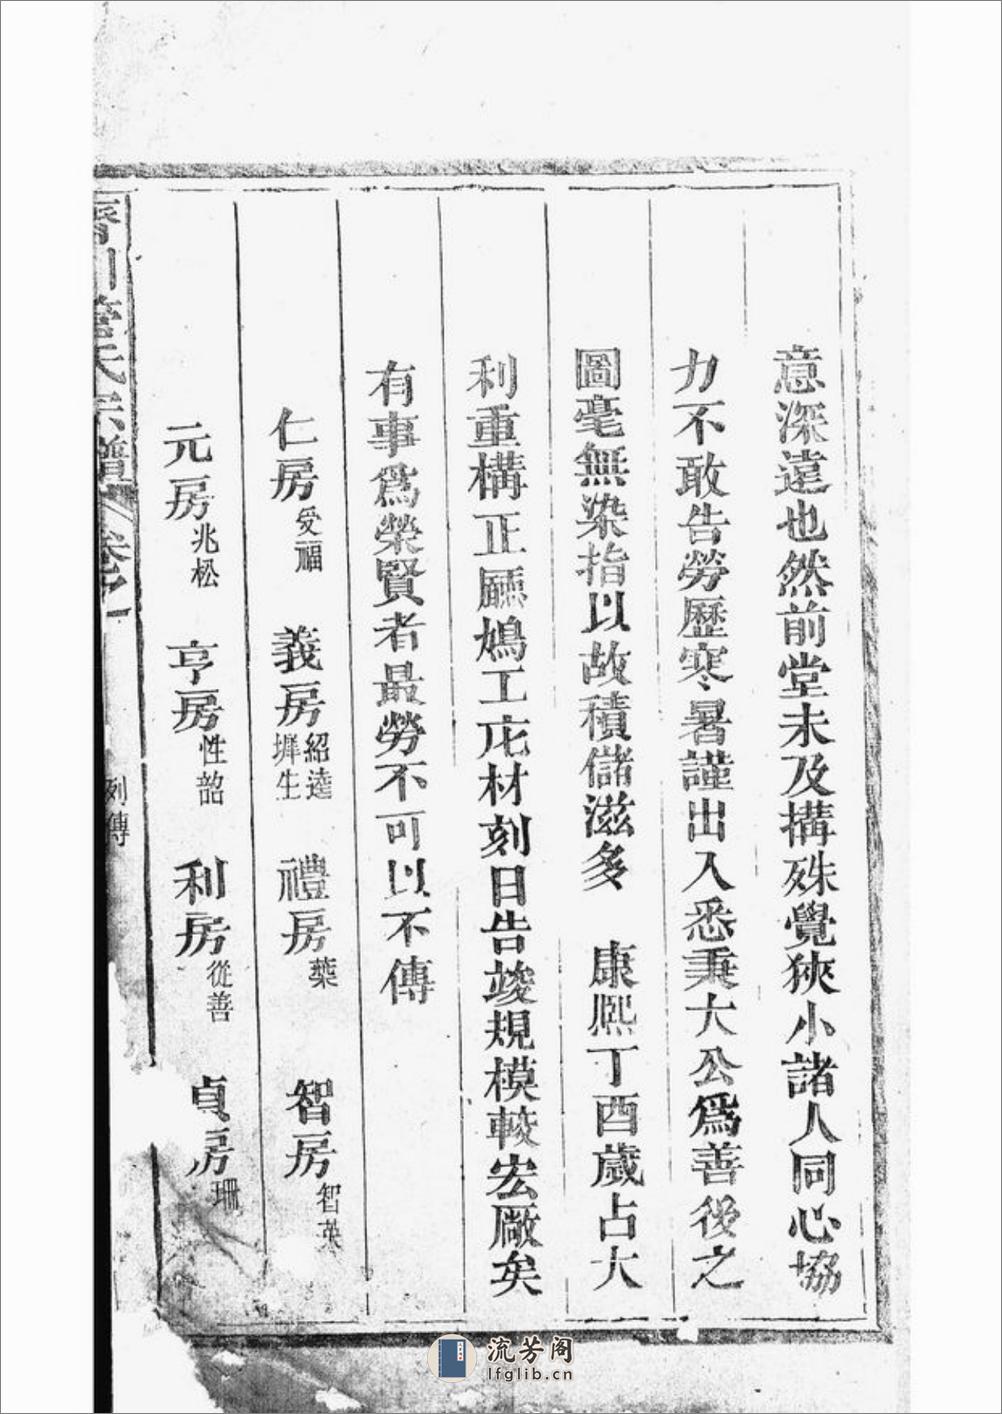 意深遠也然前堂未及搆殊覺狹小諸人同心協
力不敢告勞歷寒暑謹出入悉秉大公爲善後之
圖毫無染指以故積儲滋多　康熙丁酉歲占大
利重構正廳鳩工庀材刻日告竣規模較宏廠矣
有事爲榮賢者最勞不可以不傳
仁房受福　義房紹逵墀生　禮房葉　智房智英
元房兆松　亨房性韶　利房從善　貞房珊
川管氏宗譜　卷之一　列傳
流芳阁
lfglib.cn